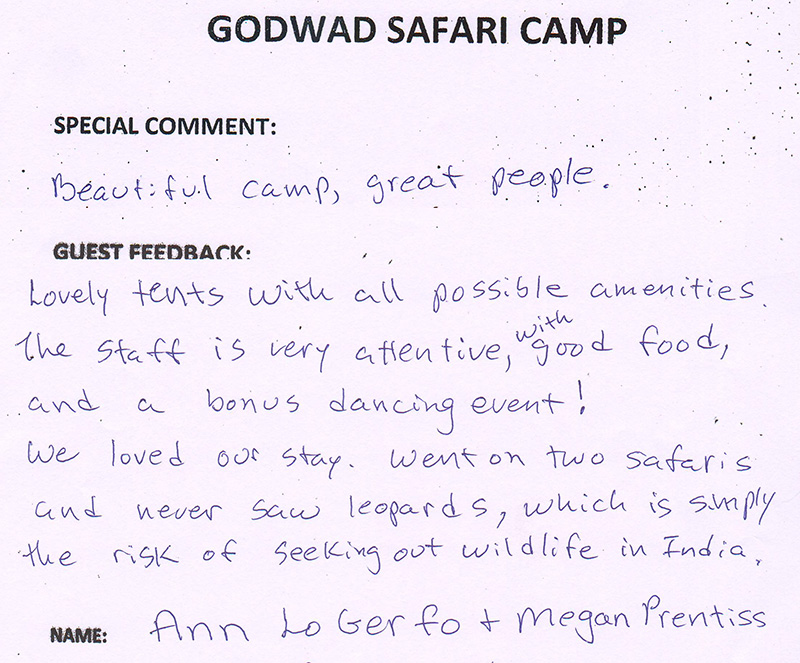 GODWAD SAFARI CAMP
SPECIAL COMMENT:
Beautiful camp, great people.
GUEST FEEDBACK:
Lovely tents with all possible amenities.
The staff is very attentive, with good food,
and a bonus dancing event!
We loved our stay. Went on two safaris
and never saw leopards, which is simply
the risk of seeking out wildlife in India.
NAME: Ann Lo Gerfo + Megan Prentiss